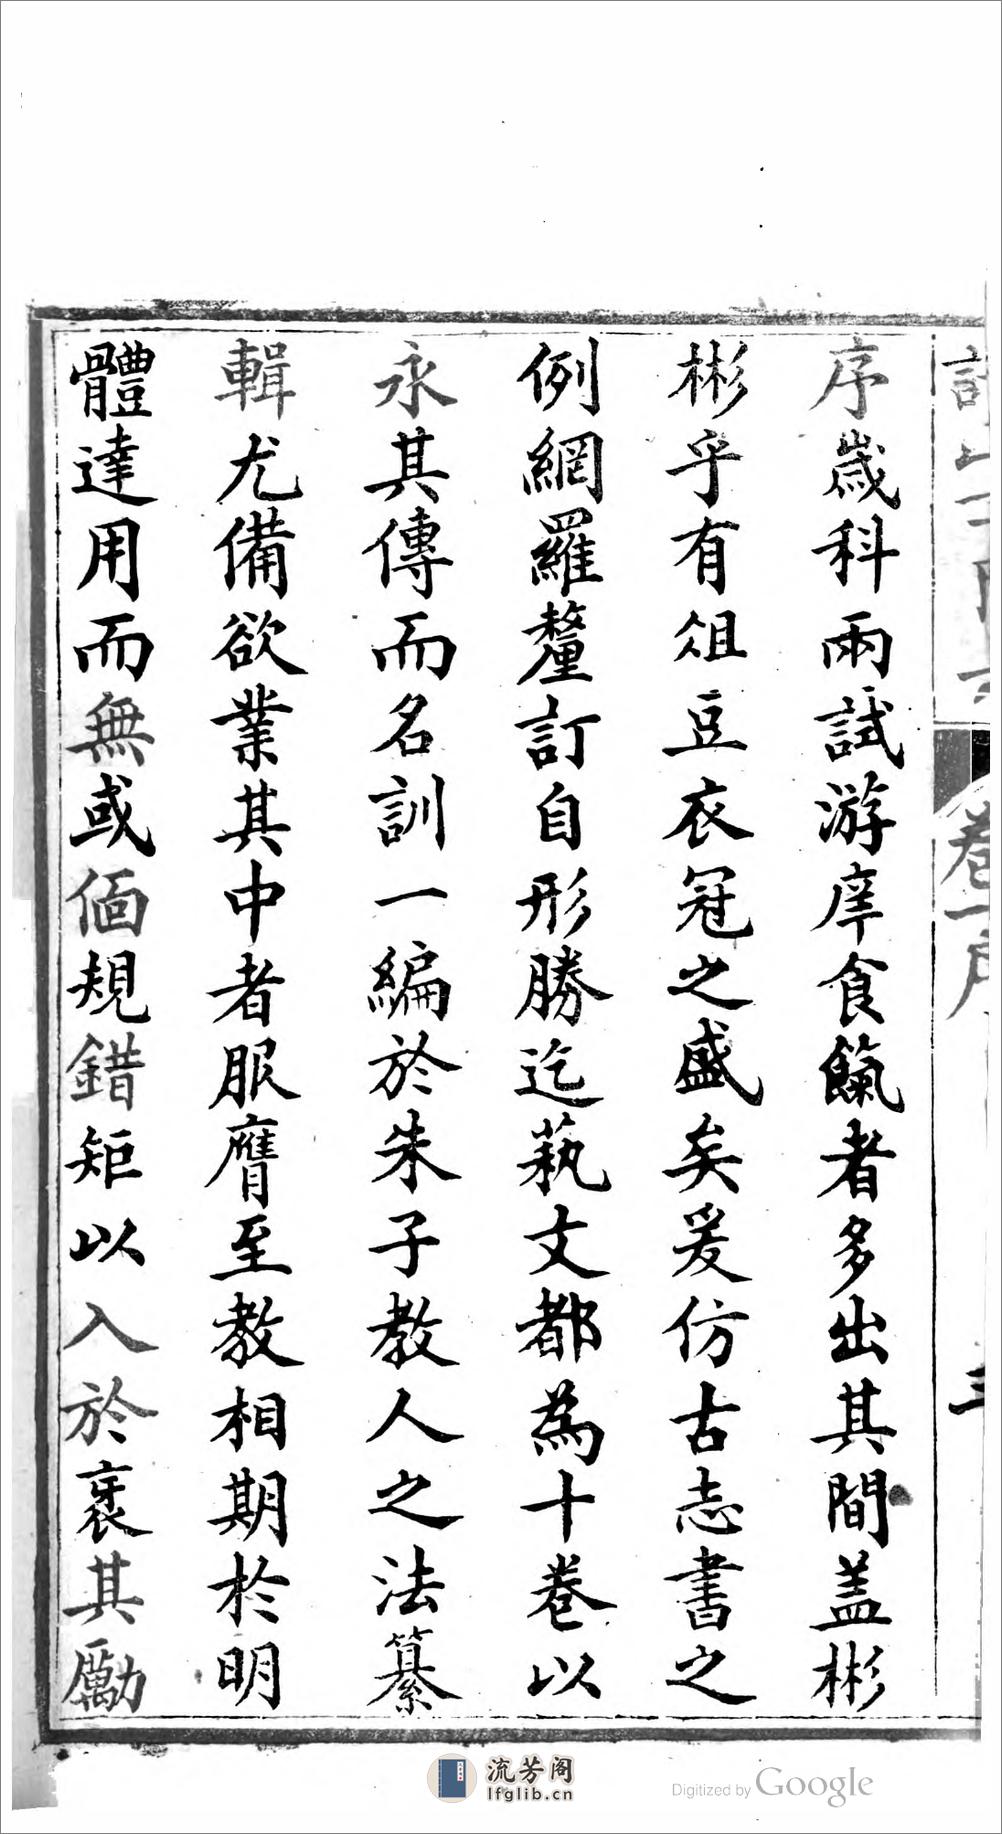 序歲科兩試游庠食餼者多出其間蓋彬
彬乎有俎豆衣冠之盛矣爰仿古志書之
例網羅釐訂自形勝迄蓺文都為十卷以
永其傳而名訓一編於朱子教人之法纂
輯尤備欲業其中者服膺至教相期於明
體達用而無或偭規錯矩以入於衺其勵
卷一序
三
流芳阁
lfglib.cn
Digitized by Google